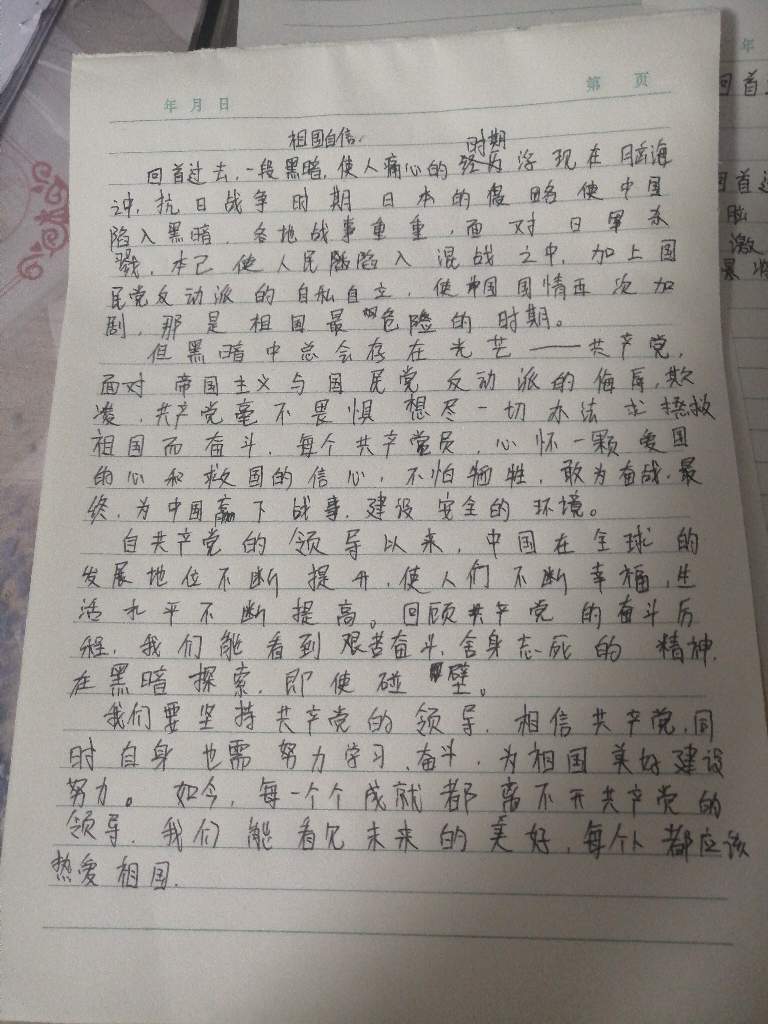 年 月 日
第 页
祖国自信.
时期
回首过去,一段黑暗,使人痛心的经历浮现在脑海
之中,抗日战争时期日本的侵略使中国
陷入黑暗.各地战事重重,面对日军杀
戮,本已使人民陷入混战之中,加上国
民党反动派的自私自立,使中国国情再次加
剧,那是祖国最危险的时期。
但黑暗中总会存在光芒——共产党,
面对帝国主义与国民党反动派的侮辱,欺
凌,共产党毫不畏惧想尽一切办法求拯救
祖国而奋斗,每个共产党员,心怀一颗爱国
的心和救国的信心,不怕牺牲,敢为奋战.最
终,为中国赢下战事.建设安全的环境。
自共产党的领导以来,中国在全球的
发展地位不断提升,使人们不断幸福,生
活水平不断提高。回顾共产党的奋斗历
程,我们能看到艰苦奋斗,舍身忘死的精神.
在黑暗探索,即使碰壁。
我们要坚持共产党的领导,相信共产党,同
时自身也需努力学习,奋斗,为祖国美好建设
努力。如今,每一个个成就都离不开共产党的
领导.我们能看见未来的美好,每个人都应该
热爱祖国.
年
回首
回首
脑
激
暴